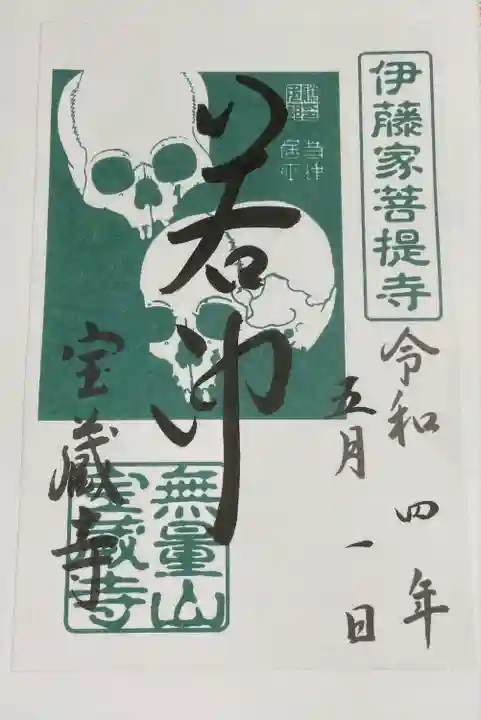 伊藤家菩提寺
令和四年
五月一日
若冲
若冲居士
宝蔵寺
無量山
宝蔵寺